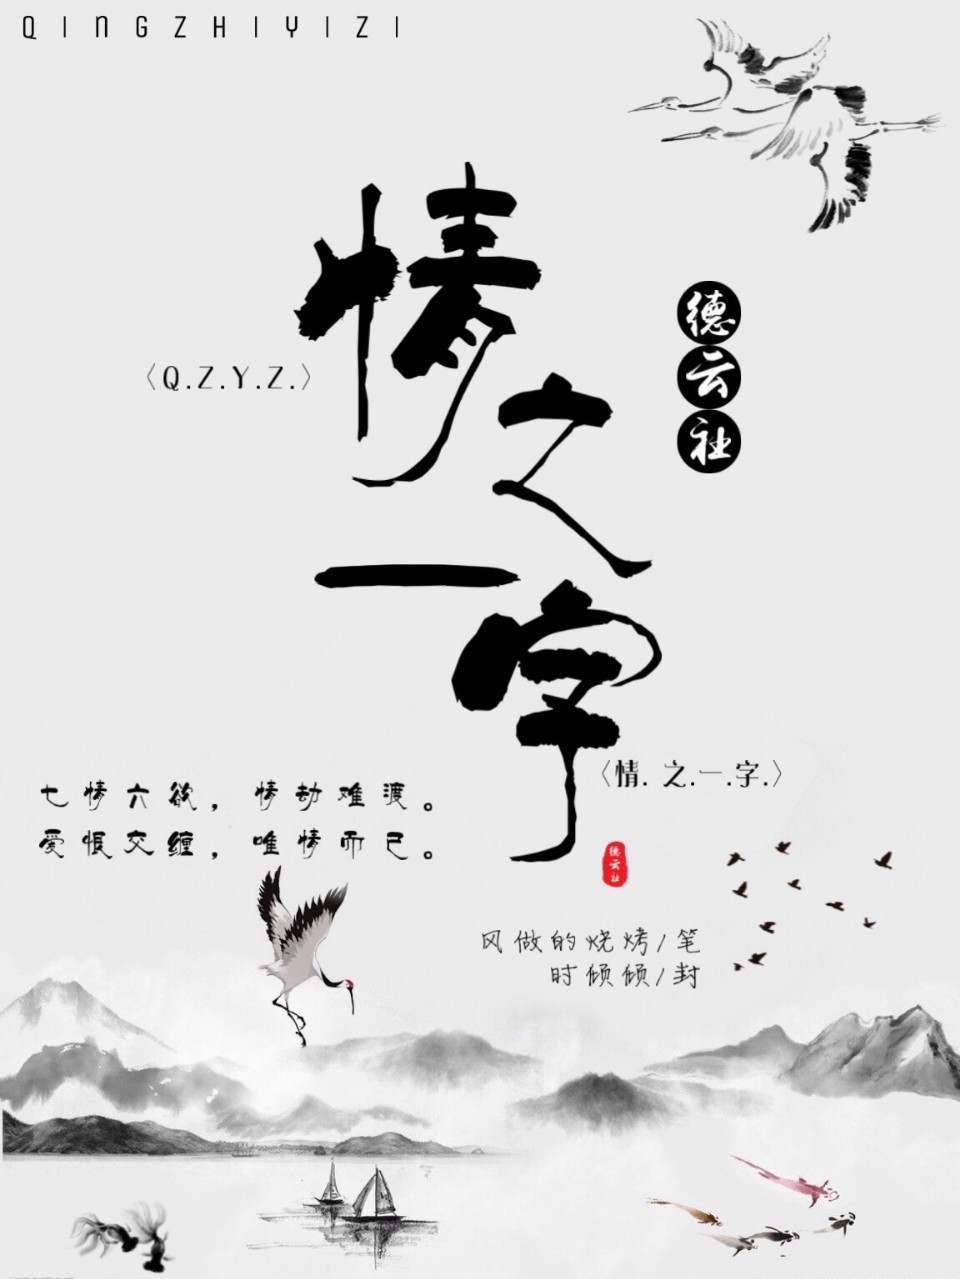 QINGZHIYIZI
情之一字
德云社
〈Q.Z.Y.Z.〉
〈情. 之.一.字.〉
七情六欲，情劫难渡。
爱恨交缠，唯情而已。
德云社
风做的烧烤/笔
时倾倾/封